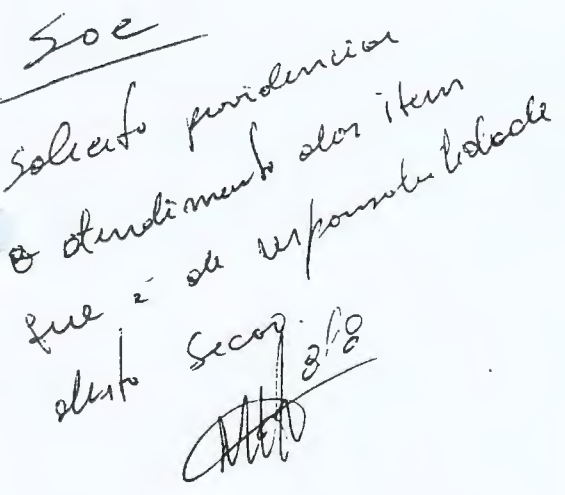 SOE
Solicito providenciar
o atendimento dos itens
que é de responsabilidade
desta Secao.